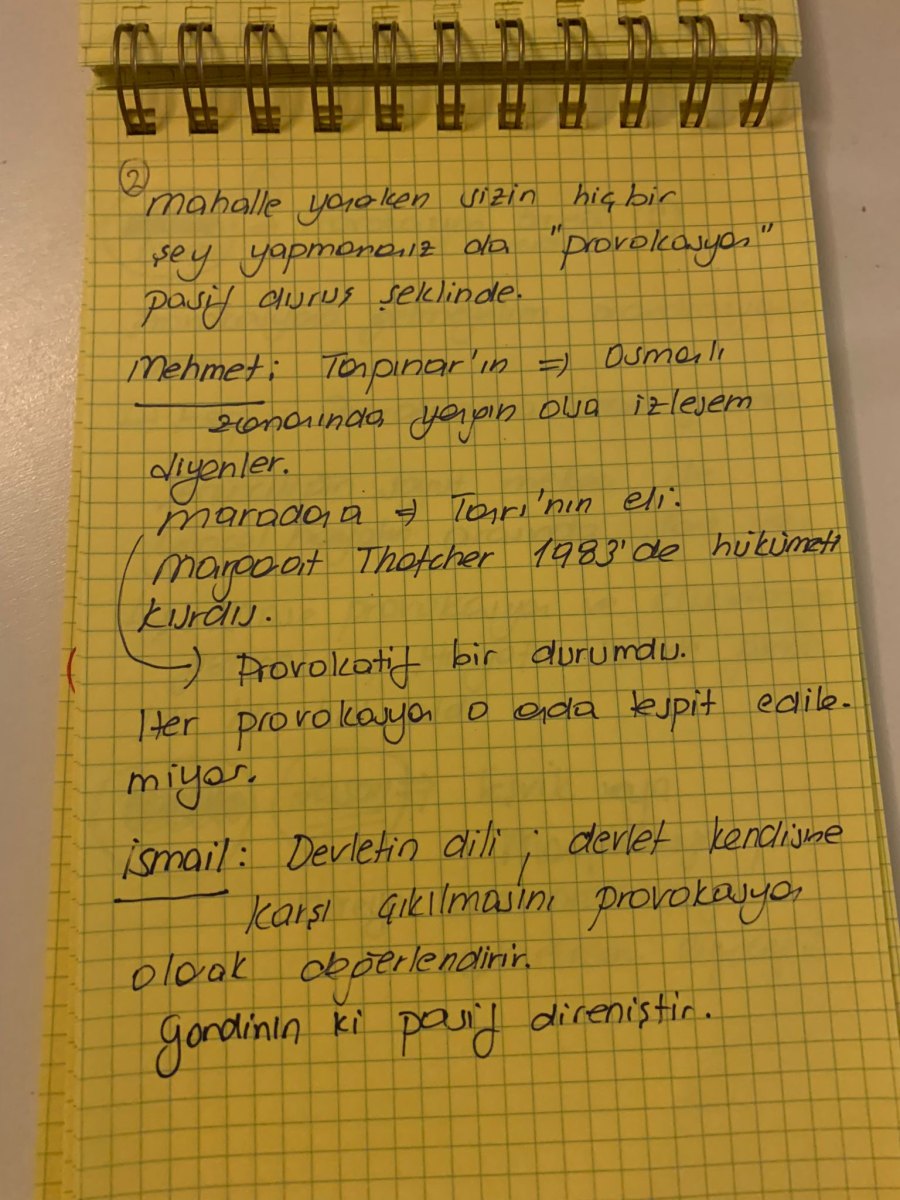 ②
mahalle yanarken sizin hiçbir
şey yapmamanız da "provokasyon"
pasif duruş şeklinde.
Mehmet: Tanpınar'ın => Osmanlı
zamanında yangın olsa izlesem
diyenler.
maradona => Tanrı'nın eli.
Margaret Thatcher 1983'de hükümeti
kurdu.
Provokatif bir durumdu.
Her provokasyon o anda tespit edile-
miyor.
İsmail: Devletin dili ; devlet kendisine
karşı çıkılmasını provokasyon
olarak değerlendirir.
Gandinin ki pasif direniştir.